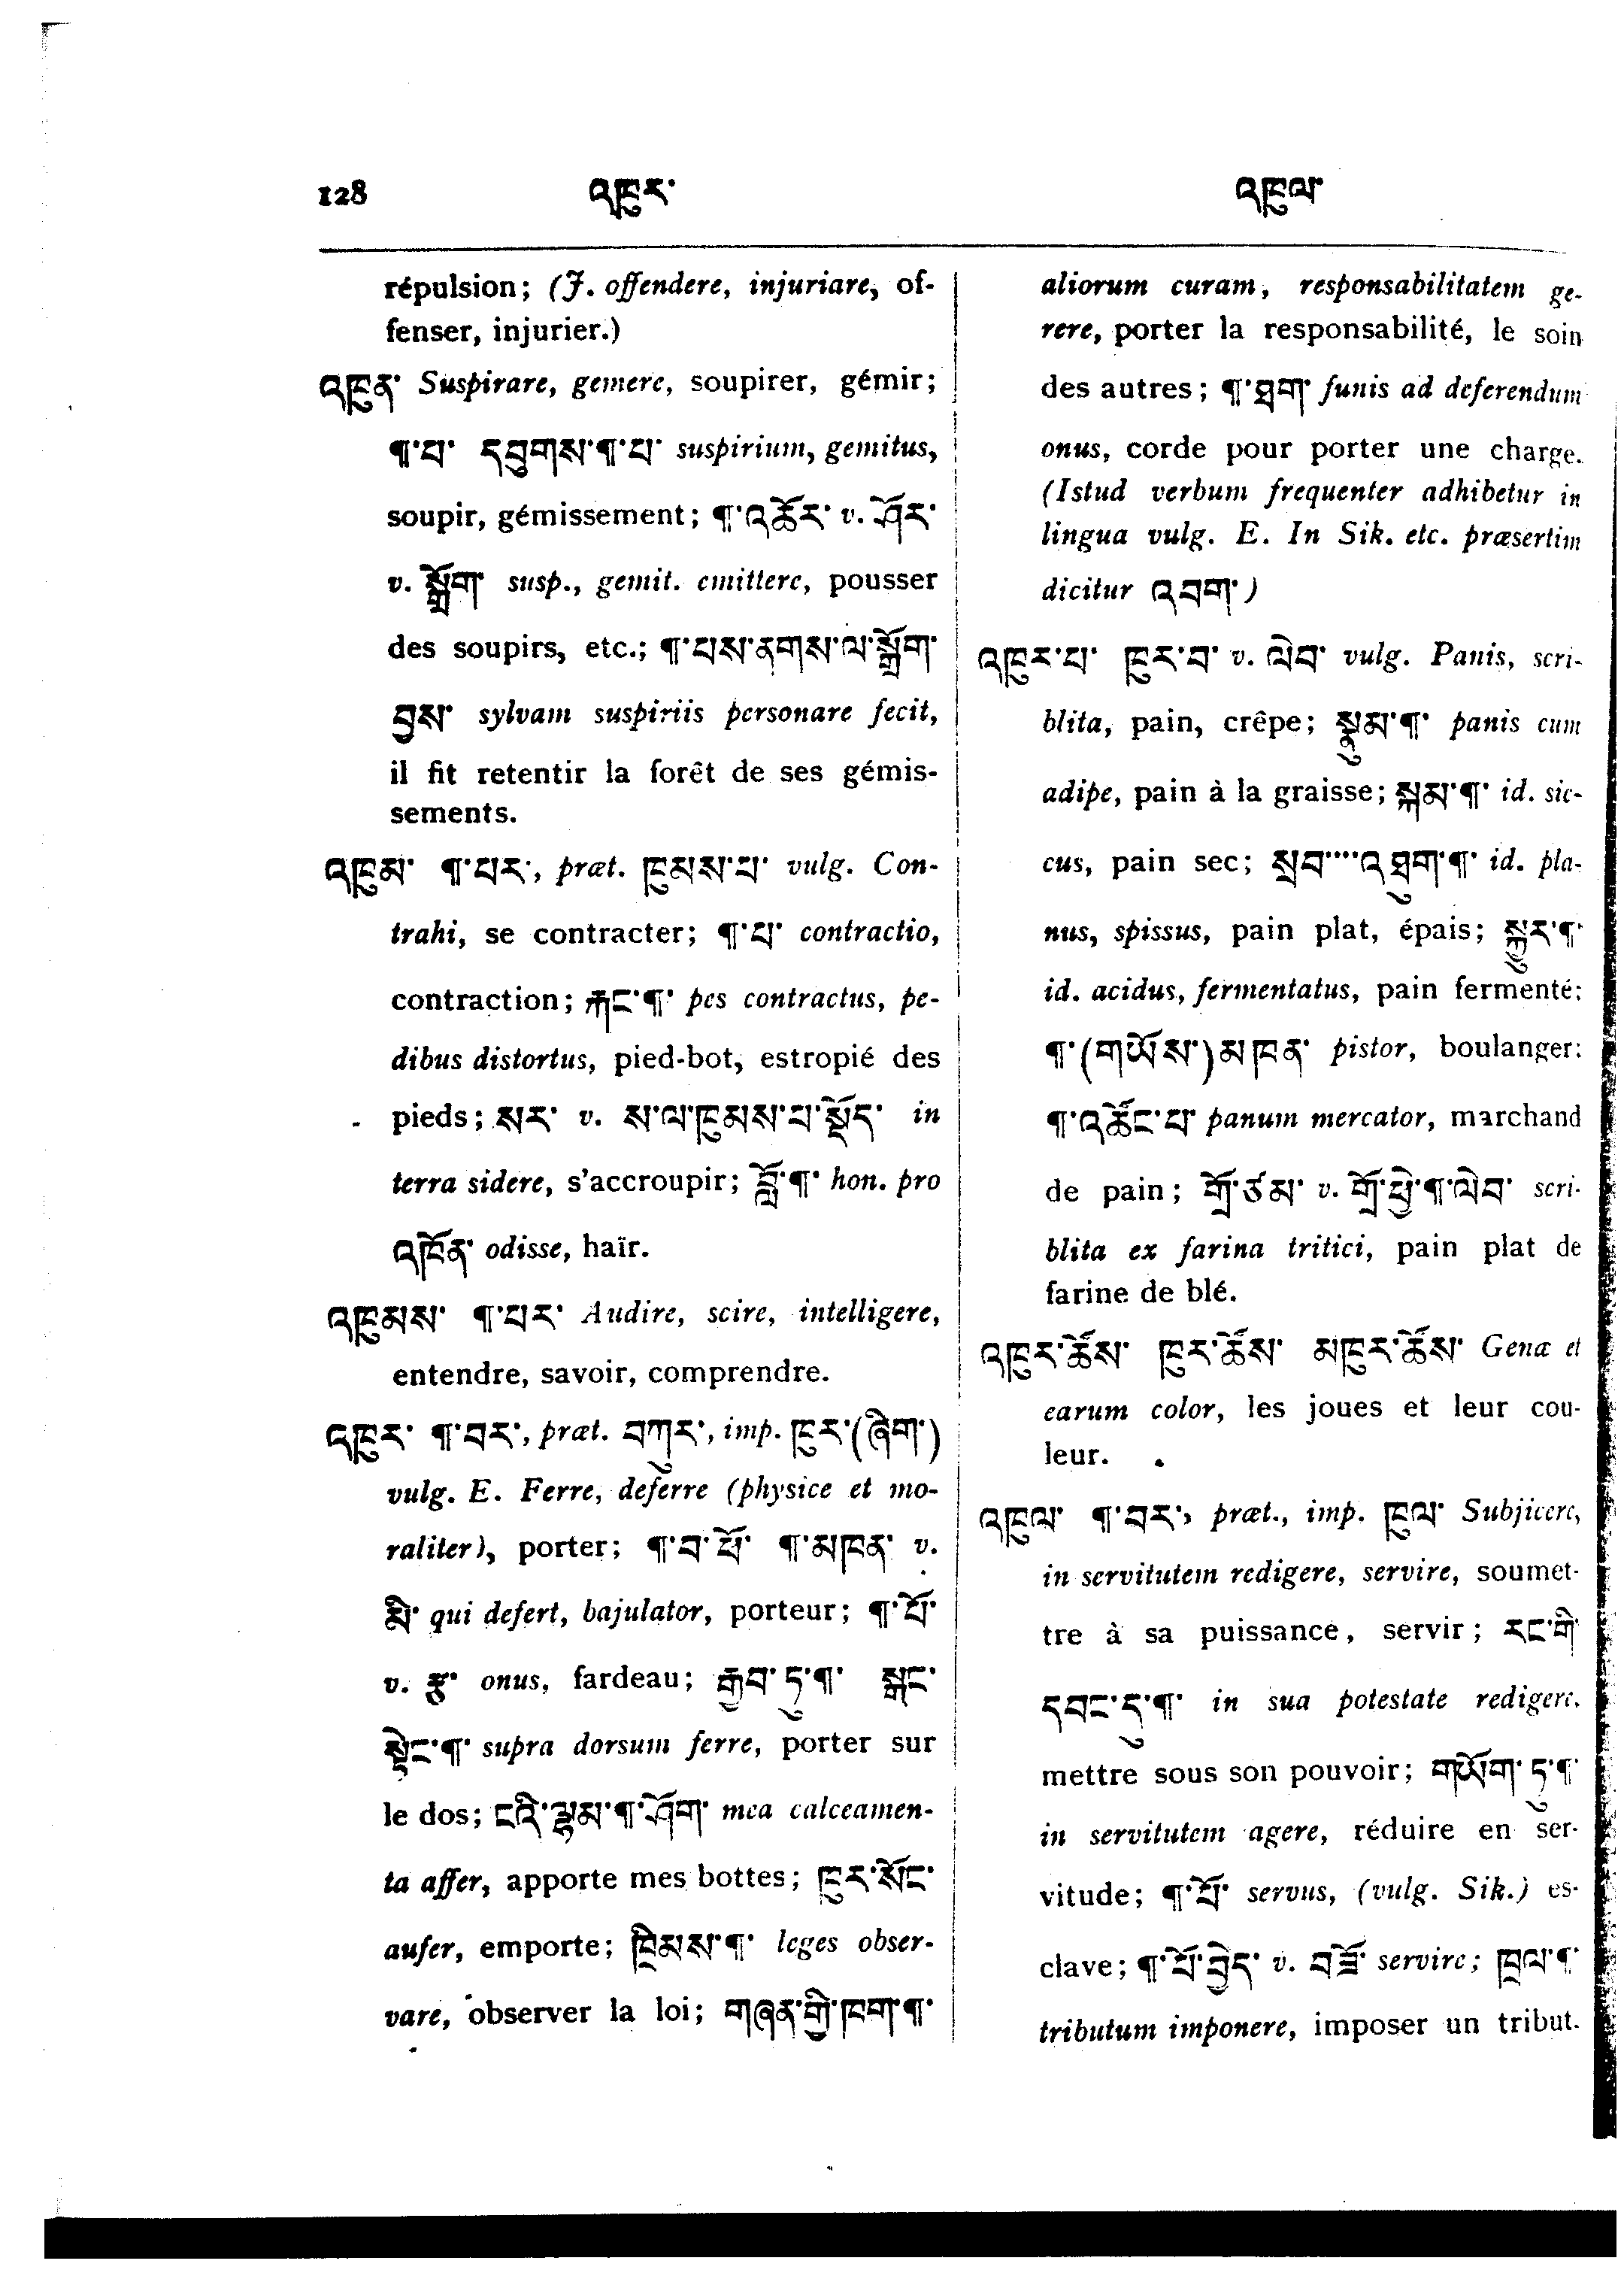 128 འཁུར་ འཁུལ་
répulsion; (J. offendere, injuriare, of-
fenser, injurier.)
འཁུན་ Suspirare, gemere, soupirer, gémir;
¶་པ་ དབུགས་¶་པ་ suspirium, gemitus,
soupir, gémissement; ¶་འཚོར་ v. ཤོར་
v. སྒྲོག་ susp., gemit. emittere, pousser
des soupirs, etc.; ¶་པས་ནགས་ལ་སྒྲོག་
བྱས་ sylvam suspiriis personare fecit,
il fit retentir la forêt de ses gémis-
sements.
འཁུམ་ ¶་པར་, præt. ཁུམས་པ་ vulg. Con-
trahi, se contracter; ¶་པ་ contractio,
contraction; རྐང་¶་ pes contractus, pe-
dibus distortus, pied-bot, estropié des
pieds; སར་ v. ས་ལ་ཁུམས་པ་སྡོད་ in
terra sidere, s'accroupir; བློ་¶་ hon. pro
འཁོན་ odisse, haïr.
འཁུམས་ ¶་པར་ Audire, scire, intelligere,
entendre, savoir, comprendre.
འཁུར་ ¶་བར་, præt. བཀུར་, imp. ཁུར་(ཞིག་)
vulg. E. Ferre, deferre (physice et mo-
raliter), porter; ¶་བ་པོ་ ¶་མཁན་ v.
མི་ qui defert, bajulator, porteur; ¶་པོ་
v. རྩ་ onus, fardeau; རྒྱབ་ཏུ་¶་ སྒང་
སྟེང་¶་ supra dorsum ferre, porter sur
le dos; ངའི་ལྷམ་¶་ཤོག་ mea calceamen-
ta affer, apporte mes bottes; ཁུར་སོང་
aufer, emporte; ཁྲིམས་¶་ leges obser-
vare, observer la loi; གཞན་གྱི་ཁག་¶་
aliorum curam, responsabilitatem ge-
rere, porter la responsabilité, le soin
des autres; ¶་ཐག་ funis ad deferendum
onus, corde pour porter une charge.
(Istud verbum frequenter adhibetur in
lingua vulg. E. In Sik. etc. præsertim
dicitur འབག་)
འཁུར་པ་ ཁུར་བ་ v. ལེབ་ vulg. Panis, scri-
blita, pain, crêpe; སྣུམ་¶་ panis cum
adipe, pain à la graisse; སྐམ་¶་ id. sic-
cus, pain sec; སྲབ་་་་འཐུག་¶་ id. pla-
nus, spissus, pain plat, épais; སྐྱུར་¶་
id. acidus, fermentatus, pain fermenté;
¶་(གཡོས་)མཁན་ pistor, boulanger;
¶་འཚོང་པ་ panum mercator, marchand
de pain; གྲོ་ཙམ་ v. གྲོ་ཕྱེ་¶་ལེབ་ scri-
blita ex farina tritici, pain plat de
farine de blé.
འཁུར་ཚོས་ ཁུར་ཚོས་ མཁུར་ཚོས་ Genæ et
earum color, les joues et leur cou-
leur.
འཁུལ་ ¶་བར་, præt., imp. ཁུལ་ Subjicere,
in servitutem redigere, servire, soumet-
tre à sa puissance, servir; རང་གི་
དབང་དུ་¶་ in sua potestate redigere,
mettre sous son pouvoir; གཡོག་ཏུ་¶་
in servitutem agere, réduire en ser-
vitude; ¶་པོ་ servus, (vulg. Sik.) es-
clave; ¶་པོ་བྱེད་ v. བཟོ་ servire; ཁྲལ་¶་
tributum imponere, imposer un tribut.